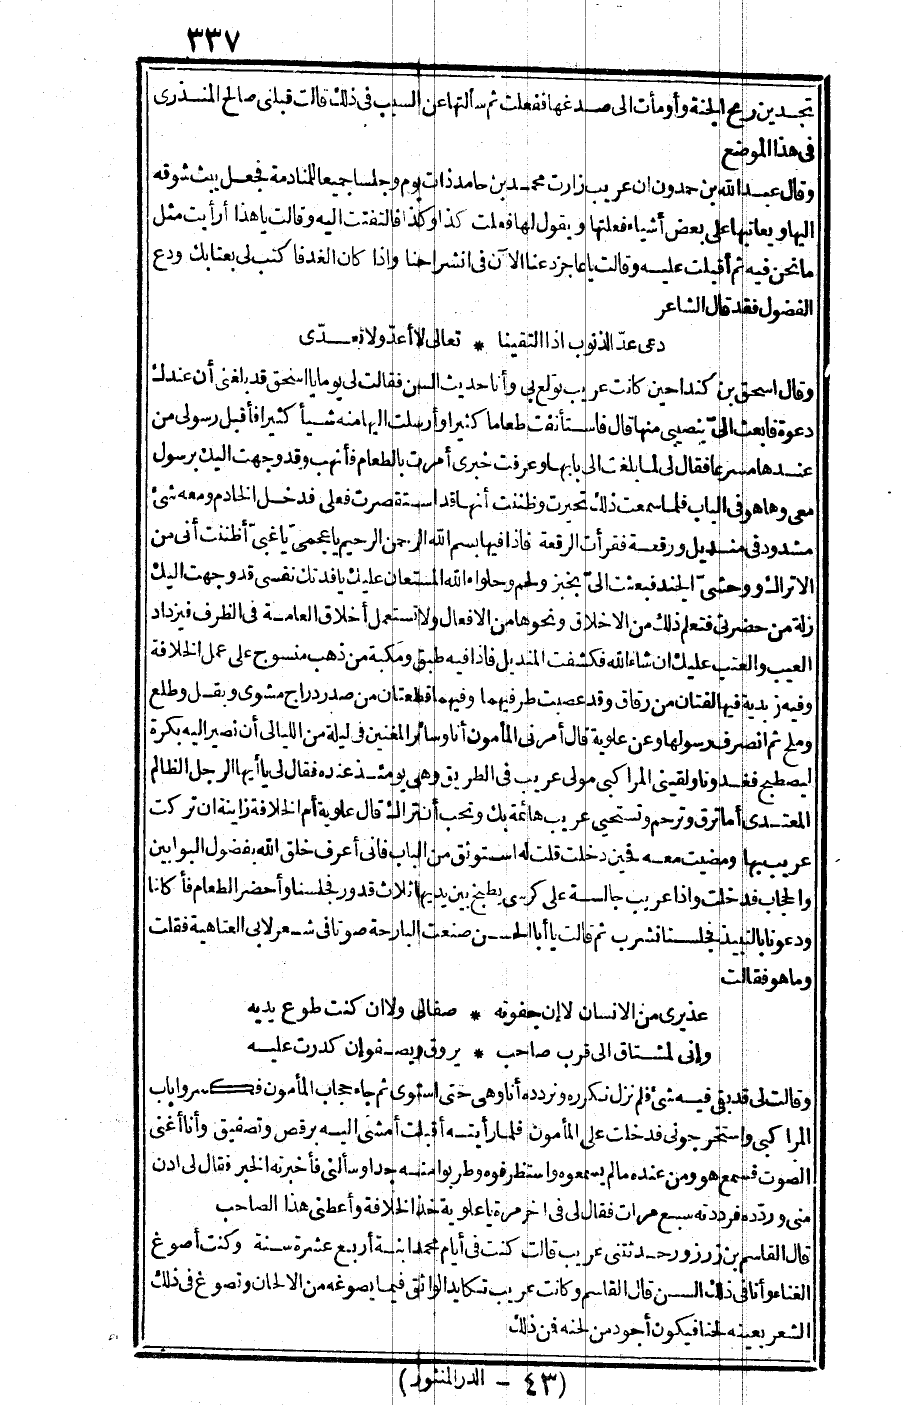 ٣٣٧
تجدين ريح الجنة وأومأت الى صدغها ففعلت ثم سألتها عن السبب في ذلك قالت قبلني صالح المنذرى
في هذا الموضع
وقال عبد الله بن حمدون ان عريب زارت محمد بن حامد ذات يوم وجلسا جميعا للمنادمة فجعل يبث شوقه
اليها ويعاتبها على بعض أشياء فعلتها ويقول لها فعلت كذا وكذا فالتفتت اليه وقالت يا هذا أرأيت مثل
ما نحن فيه ثم أقبلت عليه وقالت يا عاجز دعنا الآن في انشراحنا واذا كان الغد فاكتب لي بعتابك ودع
الفضول فقد قال الشاعر
دعى عدّ الذنوب اذا التقينا * تعالى لا أعدّ ولا تعدّى
وقال اسحق بن كنداحين كانت عريب تولع بي وأنا حديث السن فقالت لي يوما يا اسحق قد بلغني أن عندك
دعوة فابعث الىّ بنصيبي منها قال فاستأنفت طعاما كثيرا وأرسلت اليها منه شيأ كثيرا فأقبل رسولى من
عندها مسرعا فقال لى لما بلغت الى بابها وعرفت خبرى أمرت بالطعام فأنهب وقد وجهت اليك برسول
معى وها هو في الباب فلما سمعت ذلك تحيرت وظننت أنها قد استقصرت فعلى فدخل الخادم ومعه شئ
مشدود في منديل ورقعة فقرأت الرقعة فاذا فيها بسم الله الرحمن الرحيم يا عجمىّ يا غبىّ أظننت أنى من
الاتراك ووحشىّ الجند فبعثت الىّ بخبز ولحم وحلواء الله المستعان عليك يا فدتك نفسى قد وجهت اليك
زلة من حضرتى فتعلم ذلك من الاخلاق ونحوها من الافعال ولا تستعمل أخلاق العامة في الظرف فيزداد
العيب والعتب عليك ان شاء الله فكشفت المنديل فاذا فيه طبق ومكبة من ذهب منسوج على عمل الخلافة
وفيه زبدية فيها لقمتان من رقاق وقد عصبت طرفيهما وفيهما قطعتان من صدر دراج مشوى وبقل وطلع
وملح ثم انصرف رسولها وعن علوية قال أمرنى المأمون أنا وسائر المغنين في ليلة من الليالى أن نصير اليه بكرة
ليصطبح فغدونا ولقينى المراكبى مولى عريب في الطريق وهى يومئذ عنده فقال لى يا أيها الرجل الظالم
المعتدى أما ترق وترحم وتستحيى عريب هائمة بك وتحب أن تراك قال علوية أم الخلافة زانية ان تركت
عريب بها ومضيت معه فحين دخلت قلت له استوثق من الباب فانى أعرف خلق الله بفضول البوابين
والحجاب فدخلت واذا عريب جالسة على كرسى يطبخ بين يديها ثلاث قدور فجلسنا وأحضر الطعام فأكلنا
ودعونا بالنبيذ فجلسنا نشرب ثم قالت يا أبا الحسن صنعت البارحة صوتا في شعر لابى العتاهية فقلت
وما هو فقالت
عذيرى من الانسان لا إن جفوته * صفالى ولا ان كنت طوع يديه
وانى لمشتاق الى قرب صاحب * يروق ويصفو إن كدرت عليه
وقالت لى قد بقى فيه شئ فلم نزل نكرره ونردده أنا وهى حتى استوى ثم جاء حجاب المأمون فكسروا باب
المراكبى واستخرجونى فدخلت على المأمون فلما رأيته أقبلت أمشى اليه برقص وتصفيق وأنا أغنى
الصوت فسمع هو ومن عنده مالم يسمعوه واستظرفوه وطربوا منه جدا وسألنى فأخبرته الخبر فقال لى ادن
منى وردّده فرددته سبع مرات فقال لى فى اخر مرة يا علوية خذ الخلافة وأعطنى هذا الصاحب
قال القاسم بن زرزور حدثتنى عريب قالت كنت في أيام محمد ابنة أربع عشرة سنة وكنت أصوغ
الغناء وأنا في ذلك السن قال القاسم وكانت عريب تكايد الواثق فيما يصوغه من الالحان وتصوغ في ذلك
الشعر بعينه لحنا فيكون أجود من لحنه فمن ذلك
(٤٣ - الدر المنثور)